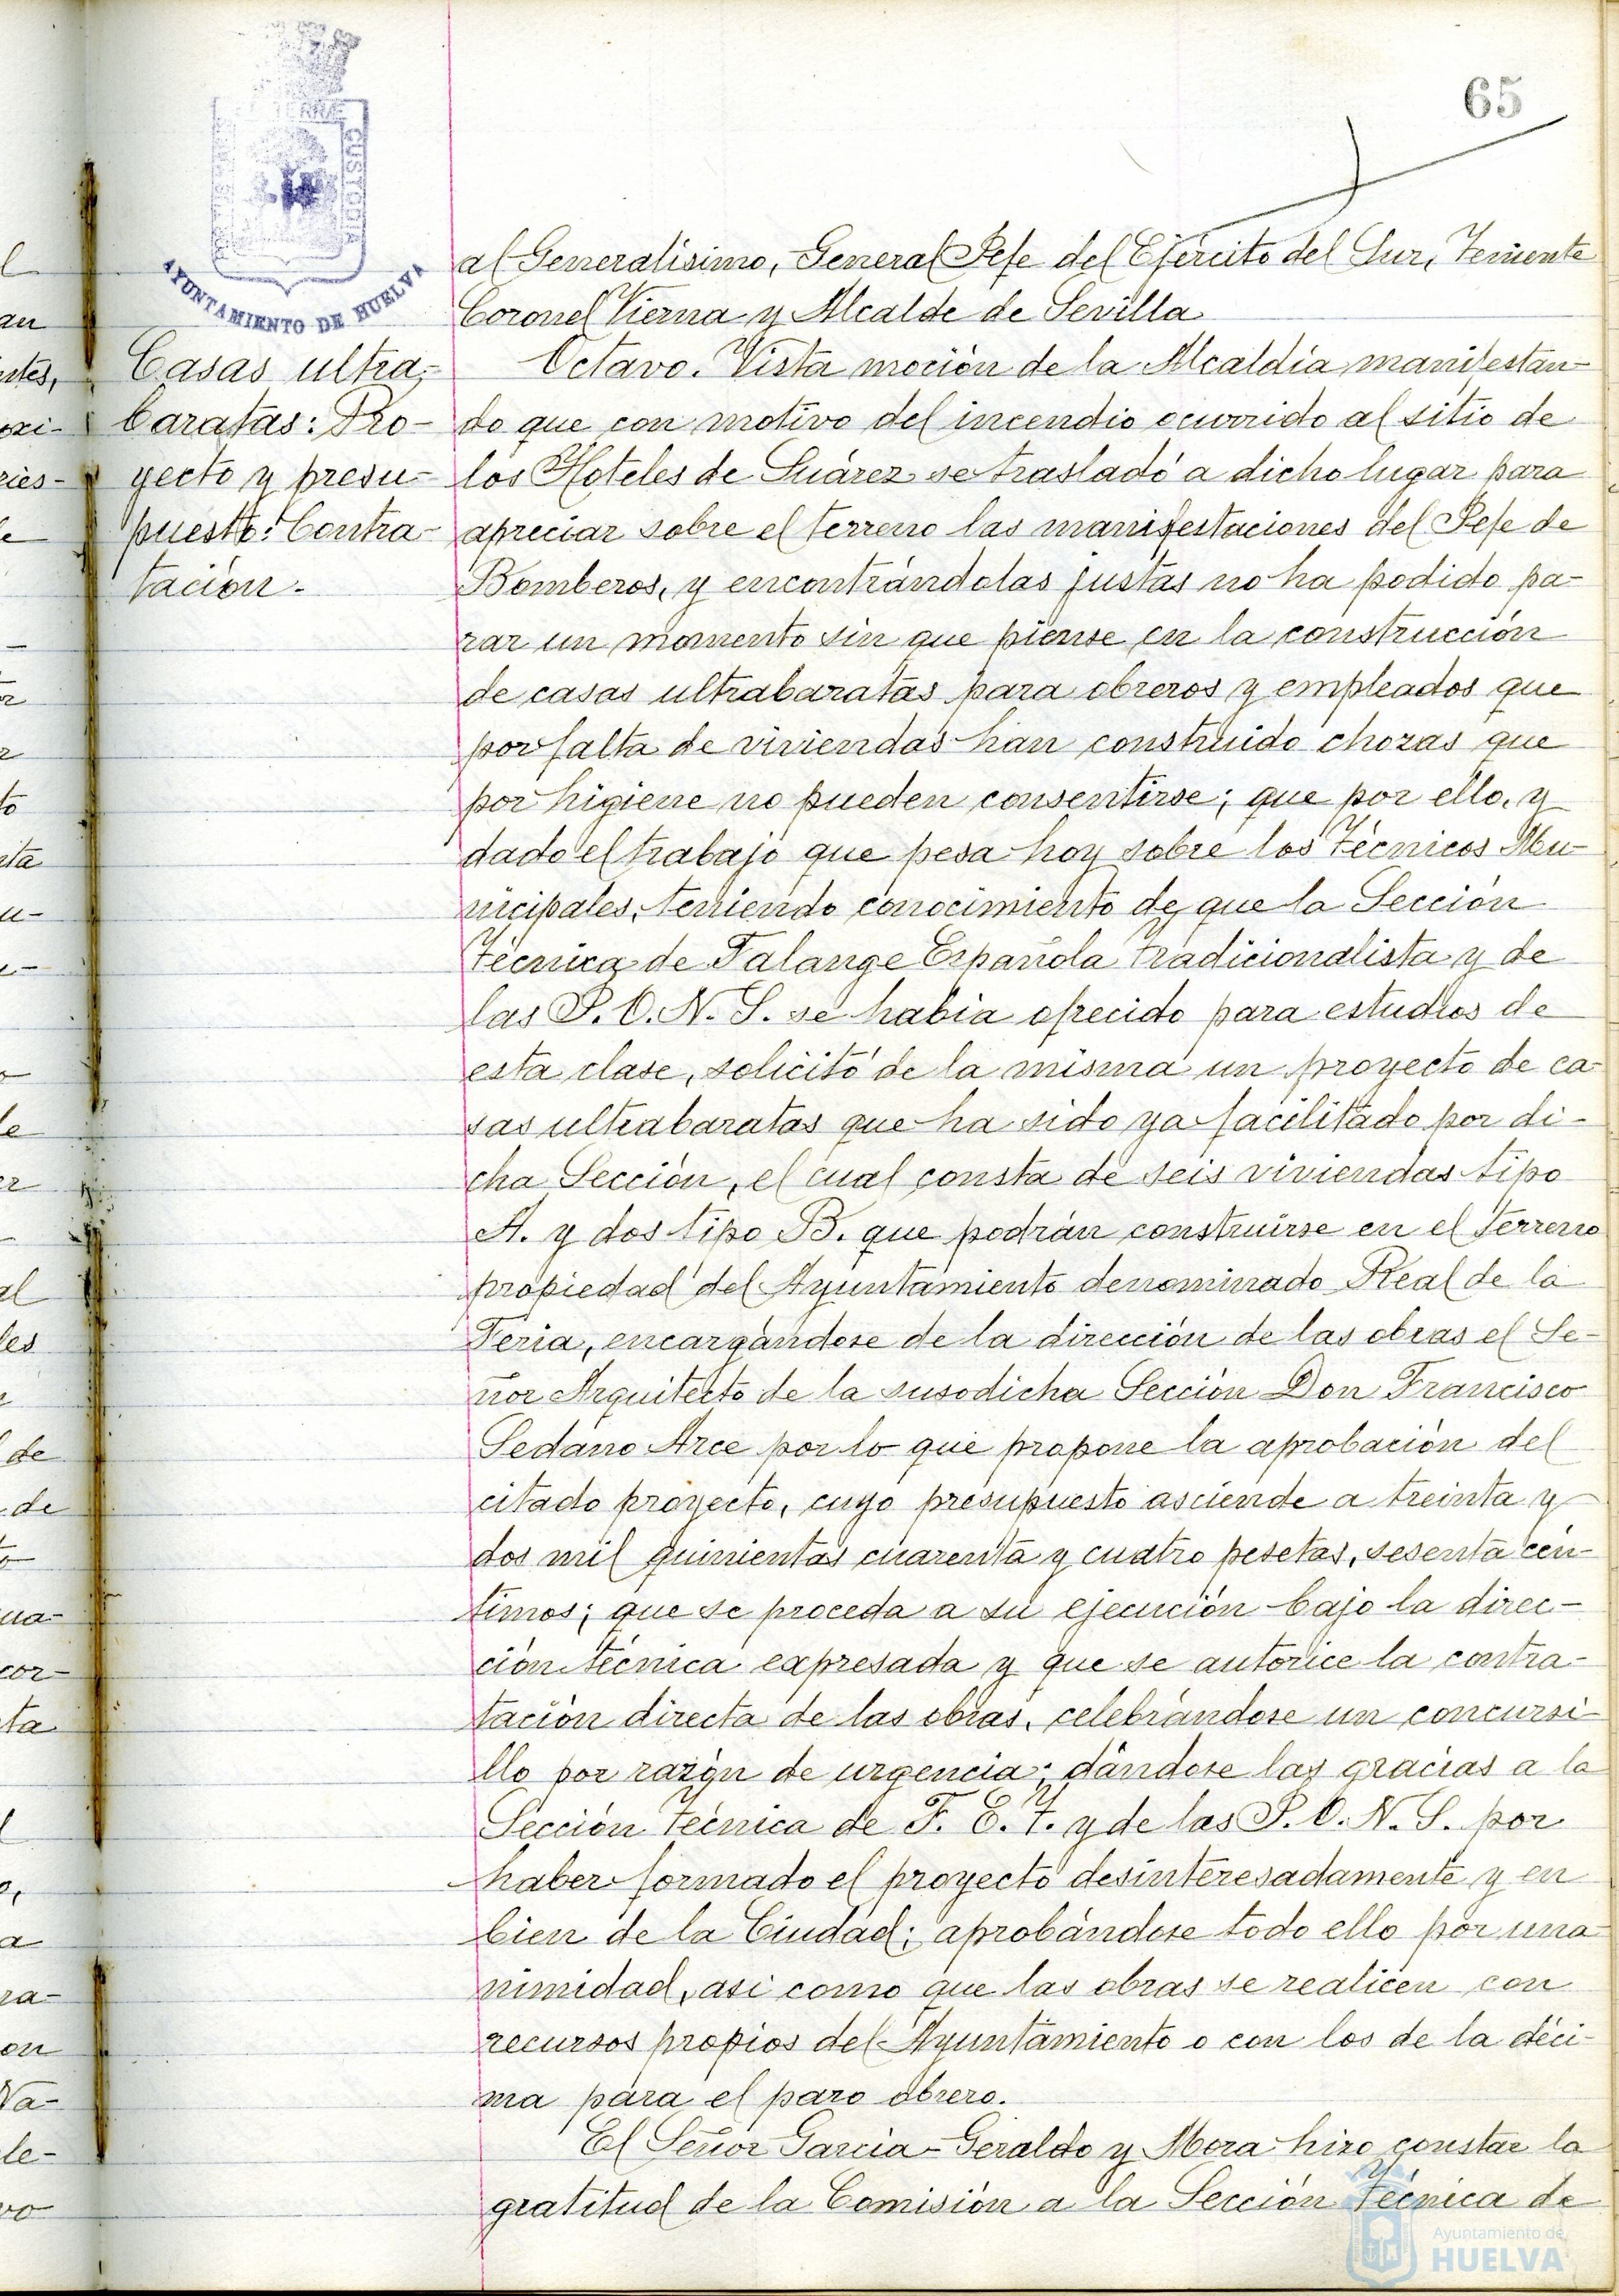 65
TERRAE
CUSTODIA
AYUNTAMIENTO DE HUELVA
al Generalísimo, General Jefe del Ejército del Sur, Teniente
Coronel Vierna y Alcalde de Sevilla
Casas ultra-
baratas: Pro-
yecto y presu-
puesto: Contra-
tación.
Octavo. Vista moción de la Alcaldía manifestan-
do que con motivo del incendio ocurrido al sitio de
los Hoteles de Suárez se trasladó a dicho lugar para
apreciar sobre el terreno las manifestaciones del Jefe de
Bomberos, y encontrándolas justas no ha podido pa-
rar un momento sin que piense en la construcción
de casas ultrabaratas para obreros y empleados que
por falta de viviendas han construido chozas que
por higiene no pueden consentirse; que por ello, y
dado el trabajo que pesa hoy sobre los Técnicos Mu-
nicipales, teniendo conocimiento de que la Sección
Técnica de Falange Española Tradicionalista y de
las J.O.N.S. se había ofrecido para estudios de
esta clase, solicitó de la misma un proyecto de ca-
sas ultrabaratas que ha sido ya facilitado por di-
cha Sección, el cual consta de seis viviendas tipo
A. y dos tipo B. que podrán construirse en el terreno
propiedad del Ayuntamiento denominado Real de la
Feria, encargándose de la dirección de las obras el Se-
ñor Arquitecto de la susodicha Sección Don Francisco
Sedano Arce por lo que propone la aprobación del
citado proyecto, cuyo presupuesto asciende a treinta y
dos mil quinientas cuarenta y cuatro pesetas, sesenta cén-
timos; que se proceda a su ejecución bajo la direc-
ción técnica expresada y que se autorice la contra-
tación directa de las obras, celebrándose un concursi-
llo por razón de urgencia; dándose las gracias a la
Sección Técnica de F. E. T. y de las J. O. N. S. por
haber formado el proyecto desinteresadamente y en
bien de la Ciudad; aprobándose todo ello por una
nimidad, asi como que las obras se realicen con
recursos propios del Ayuntamiento o con los de la déci-
ma para el paro obrero.
El Señor García-Geraldo y Mora hizo constar la
gratitud de la Comisión a la Sección Técnica de
Ayuntamiento de
HUELVA